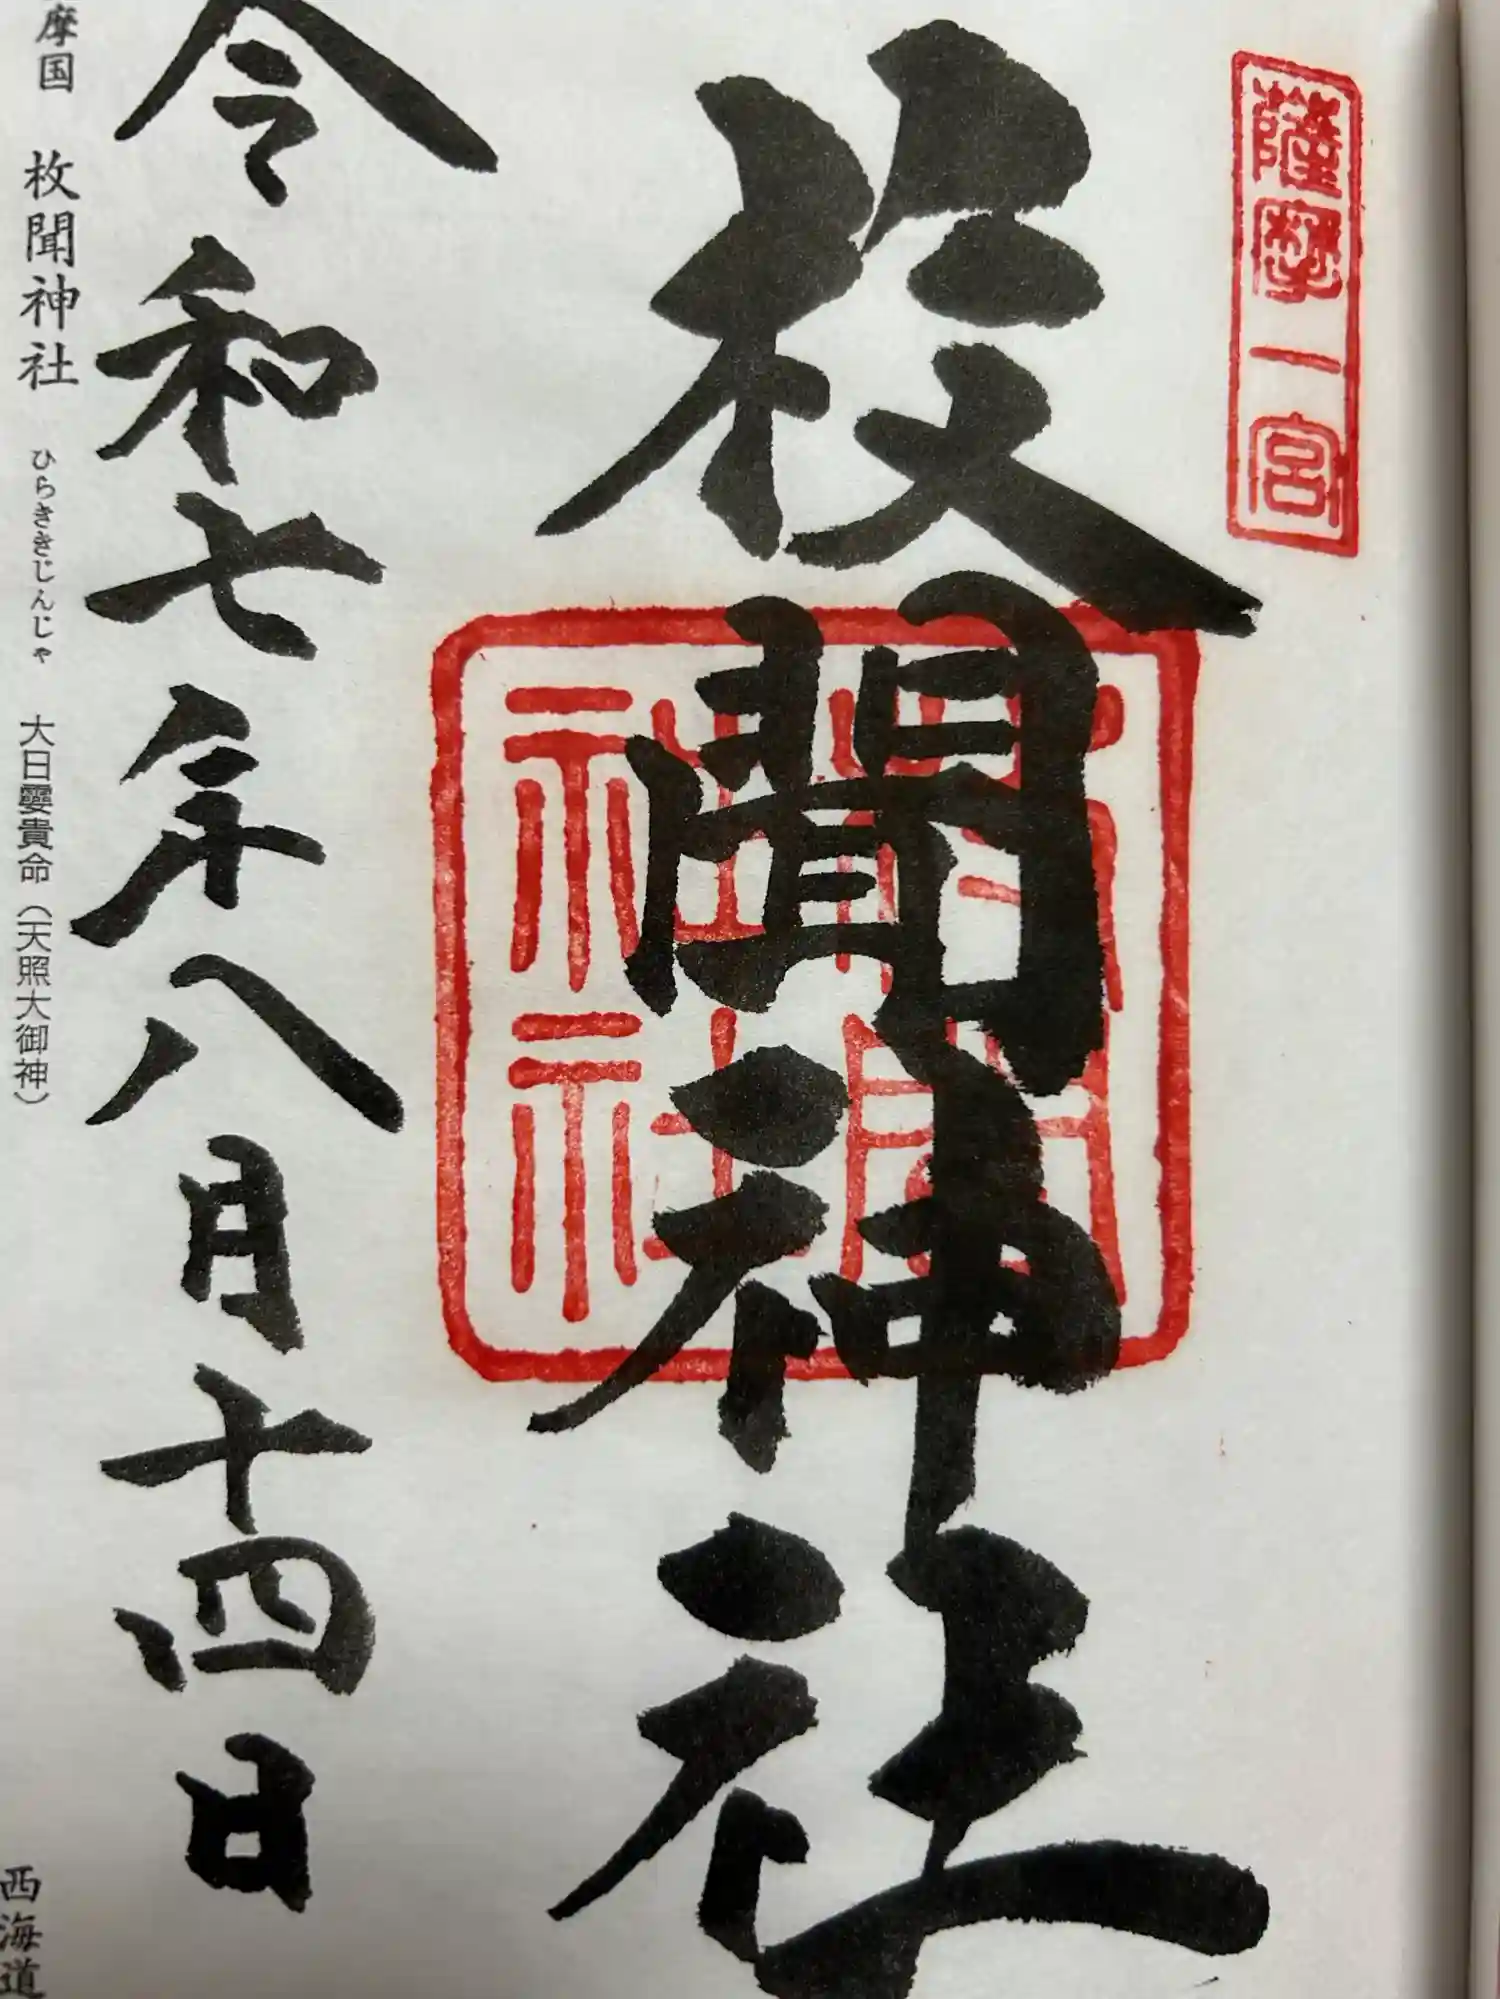 薩摩一宮
枚聞神社
枚聞神社
令和七年八月十四日
摩国 枚聞神社 ひらききじんじゃ 大日孁貴命(天照大御神)
西海道